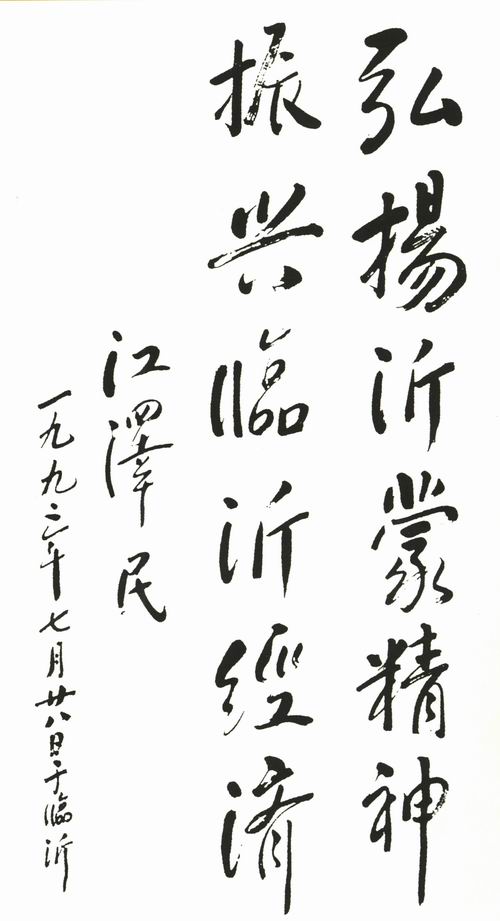 弘揚沂蒙精神
振兴臨沂經済
江澤民
一九九二年七月廿八日于臨沂